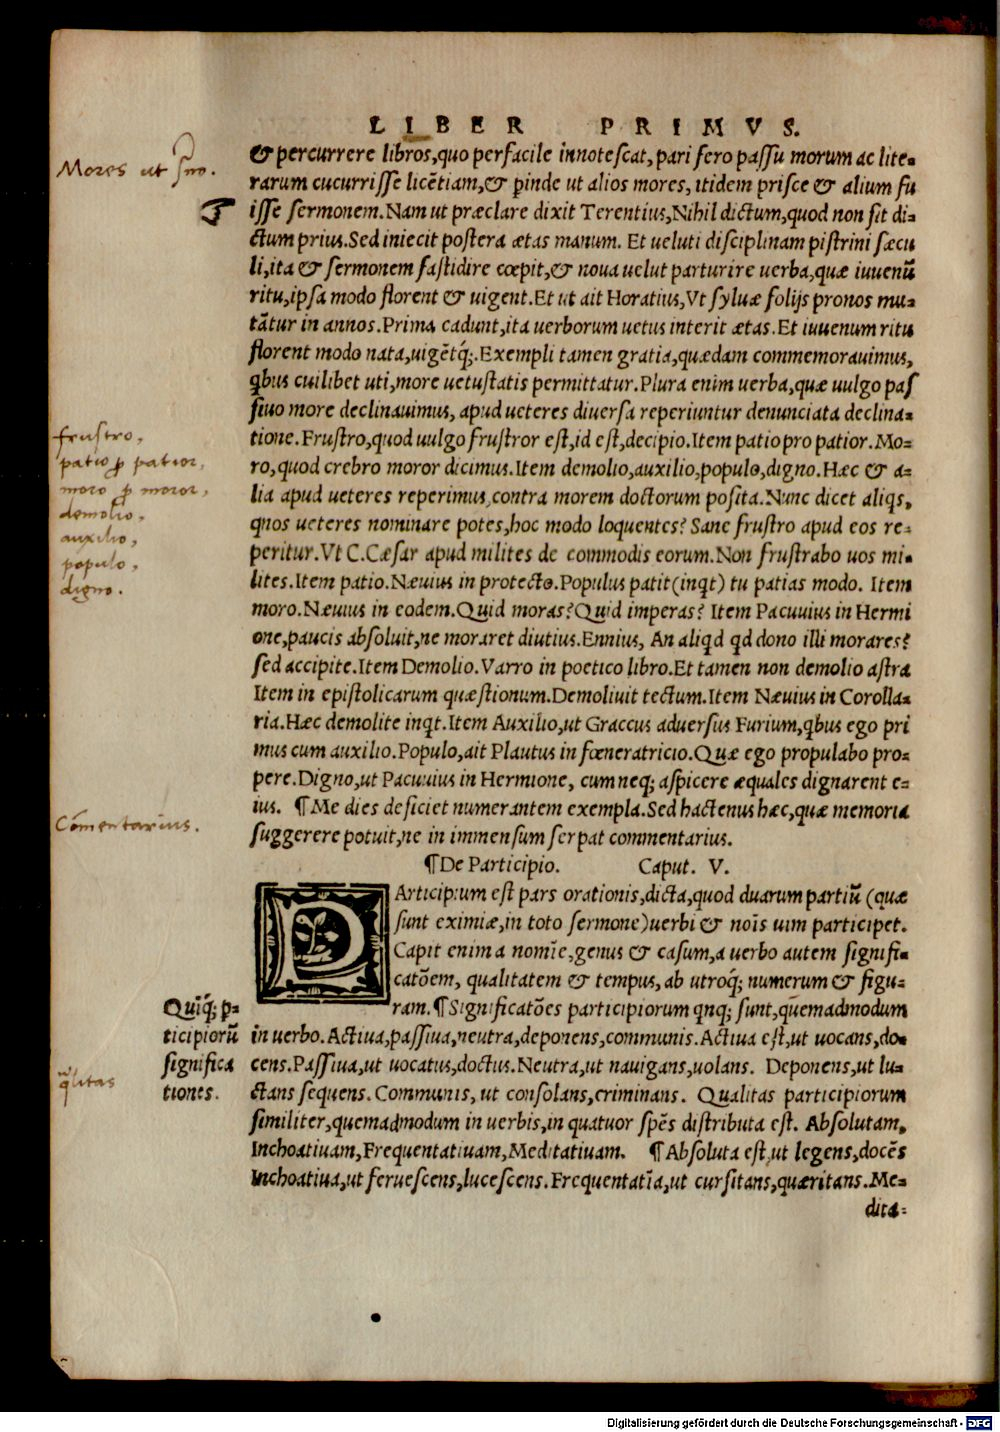 LIBER PRIMVS.
& percurrere libros,quo perfacile innotescat,pari fero passu morum ac lite-
Mores ut smo.
rarum cucurrisse licētiam,& ꝓinde ut alios mores,itidem prisce & alium fu
isse sermonem.Nam ut præclare dixit Terentius,Nihil dictum,quod non sit di-
ctum prius.Sed iniecit postera ætas manum. Et ueluti disciplinam pistrini sæcu
li,ita & sermonem fastidire cœpit,& noua uelut parturire uerba,quæ iuuenū
ritu,ipsa modo florent & uigent.Et ut ait Horatius,Vt syluæ folijs pronos mu-
tātur in annos.Prima cadunt,ita uerborum uetus interit ætas.Et iuuenum ritu
florent modo nata,uigētq́;.Exempli tamen gratia,quædam commemorauimus,
qbus cuilibet uti,more uetustatis permittatur.Plura enim uerba,quæ uulgo pas
siuo more declinauimus, apud ueteres diuersa reperiuntur denunciata declina-
tione.Frustro,quod uulgo frustror est,id est,decipio.Item patio pro patior.Mo-
ro,quod crebro moror dicimus.Item demolio,auxilio,populo,digno.Hæc & a-
lia apud ueteres reperimus,contra morem doctorum posita.Nunc dicet aliqs,
quos ueteres nominare potes,hoc modo loquentes? Sane frustro apud eos re-
peritur.Vt C.Cæsar apud milites de commodis eorum.Non frustrabo uos mi-
lites.Item patio.Næuius in protecto.Populus patit(inqt) tu patias modo. Item
moro.Næuius in eodem.Quid moras?Quid imperas? Item Pacuuius in Hermi
one,paucis absoluit,ne moraret diutius.Ennius, An aliqd qd dono illi morares?
sed accipite.Item Demolio.Varro in poetico libro.Et tamen non demolio astra
Item in epistolicarum quæstionum.Demoliuit tectum.Item Næuius in Corolla-
ria.Hæc demolite inqt.Item Auxilio,ut Graccus aduersus Furium,qbus ego pri
mus cum auxilio.Populo,ait Plautus in fœneratricio.Quæ ego propulabo pro-
pere.Digno,ut Pacuuius in Hermione, cum neq; aspicere æquales dignarent e-
ius. ¶Me dies deficiet numerantem exempla.Sed hactenus hæc,quæ memoria
suggerere potuit,ne in immensum serpat commentarius.
frustro,
patio ꝓ patior,
moro ꝓ moror,
demolio,
auxilio,
populo,
digno.
Cōmentarius.
¶De Participio. Caput. V.
PArticipium est pars orationis,dicta,quod duarum partiū (quæ
sunt eximiæ,in toto sermone)uerbi & noīs uim participet.
Capit enim a nomīe,genus & casum,a uerbo autem signifi-
catōem, qualitatem & tempus, ab utroq́; numerum & figu-
ram.¶Significatōes participiorum qnq; sunt,quēmadmodum
in uerbo.Actiua,passiua,neutra,deponens,communis.Actiua est,ut uocans,do-
cens.Passiua,ut uocatus,doctus.Neutra,ut nauigans,uolans. Deponens,ut lu-
ctans sequens.Communis, ut consolans,criminans. Qualitas participiorum
similiter,quemadmodum in uerbis,in quatuor spēs distributa est. Absolutam,
Inchoatiuam,Frequentatiuam,Meditatiuam. ¶Absoluta est,ut legens,docēs
Inchoatiua,ut feruescens,lucescens.Frequentatīa,ut cursitans,quæritans.Me-
dita-
Quīq́; p-
ticipiorū
significa
tiones.
qlitas
Digitalisierung gefördert durch die Deutsche Forschungsgemeinschaft - DFG